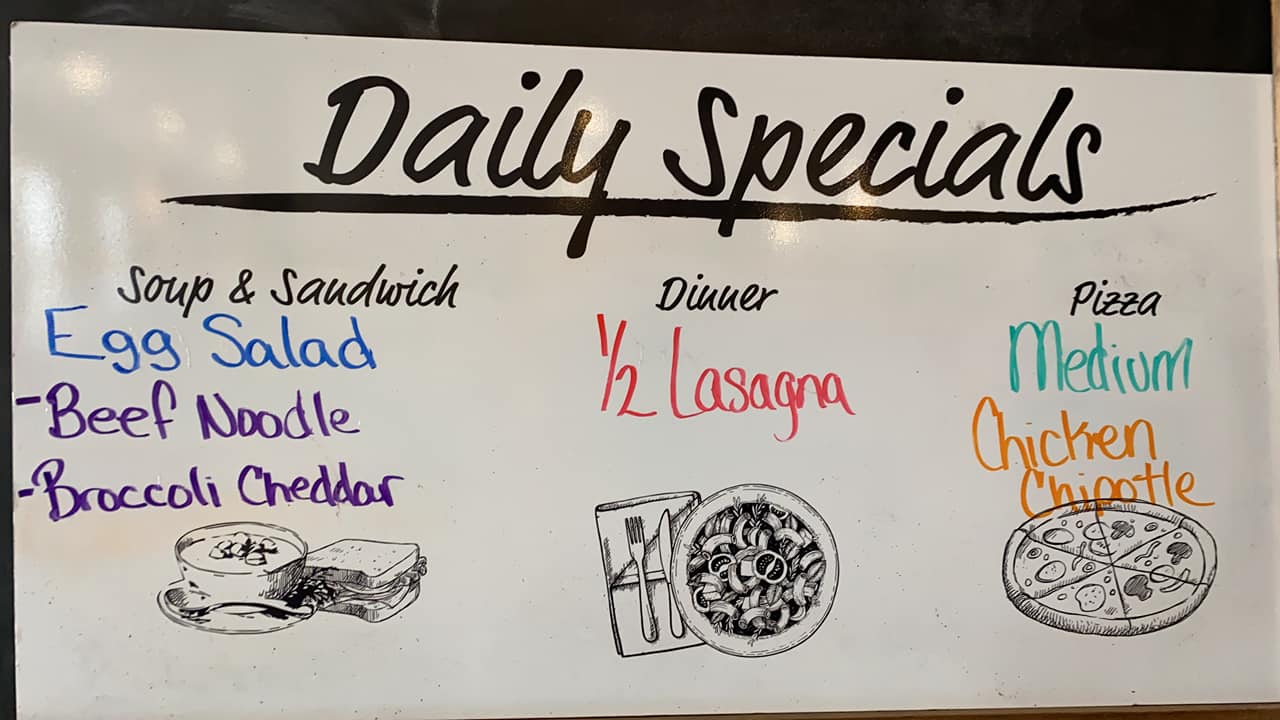 Daily Specials
Soup & Sandwich
Egg Salad
-Beef Noodle
-Broccoli Cheddar
Dinner
1/2 Lasagna
Pizza
Medium
Chicken
Chipotle